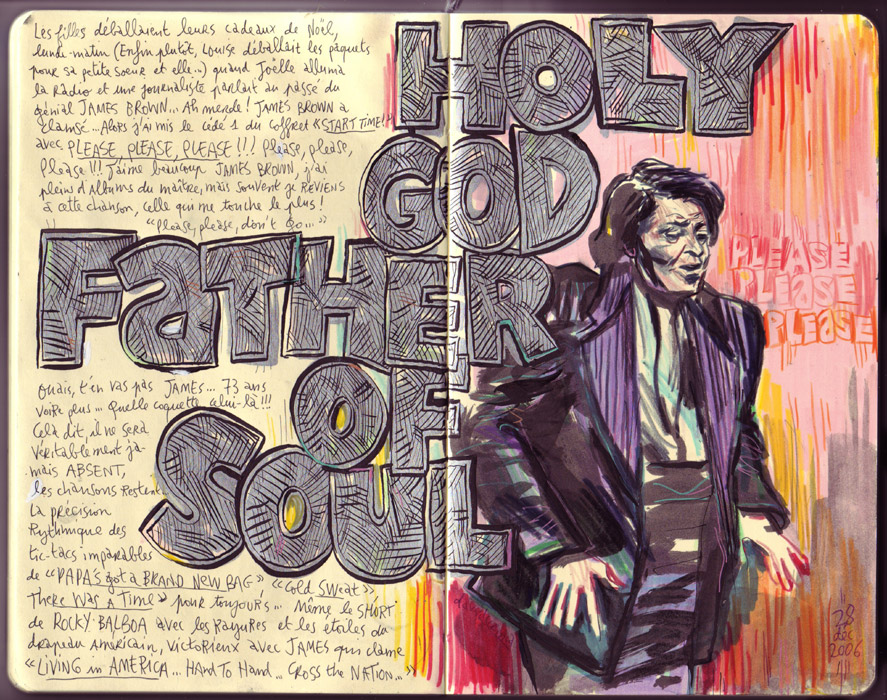 Les filles déballaient leurs cadeaux de Noël,
lundi-matin (Enfin plutôt, Louise déballait les paquets
pour sa petite soeur et elle...) quand Joëlle alluma
la Radio et une journaliste parlait au passé du
génial JAMES BROWN... Ah merde! JAMES BROWN a
clamsé... Alors j'ai mis le cédé 1 du coffret "START TIME!"
avec PLEASE PLEASE, PLEASE!!! Please, please,
Please!!! J'aime beaucoup JAMES BROWN, j'ai
pleins d'Albums du maître, mais souvent je REVIENS
à cette chanson, celle qui me touche le plus!
"Please, please, don't Go..."
HOLY
GOD
FaTHER
OF
SOUL
PLEASE
PLEaSE
PLEaSE
Ouais, t'en vas pas JAMES... 73 ans
voire plus... quelle coquette celui-là!!!
Cela dit, il ne sera
véritablement ja-
mais ABSENT,
les chansons restent...
La précision
Rythmique des
tic-tacs imparables
de "PAPA'S got a BRAND NEW BAG" "Cold SWeat"
There Was a Time" pour toujours... Même le SHORT
de ROCKY BALBOA avec les Rayures et les étoiles du
drapeau américain, victorieux avec JAMES qui clame
"LIVING in AMERICA... HAND TO Hand... CROSS the NATION..."
28
déc
2006